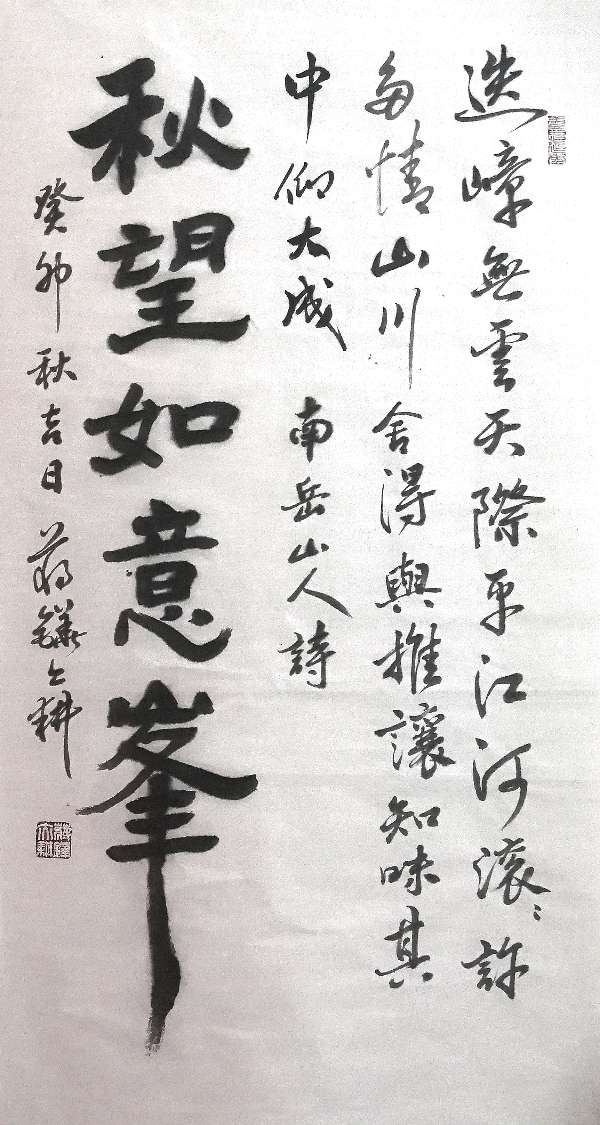 迭嶂無雲天際平江河滾〻許
多情山川舍得與推讓知味其
中仰大成 南岳山人詩
秋望如意峯
癸卯秋吉日 蔣